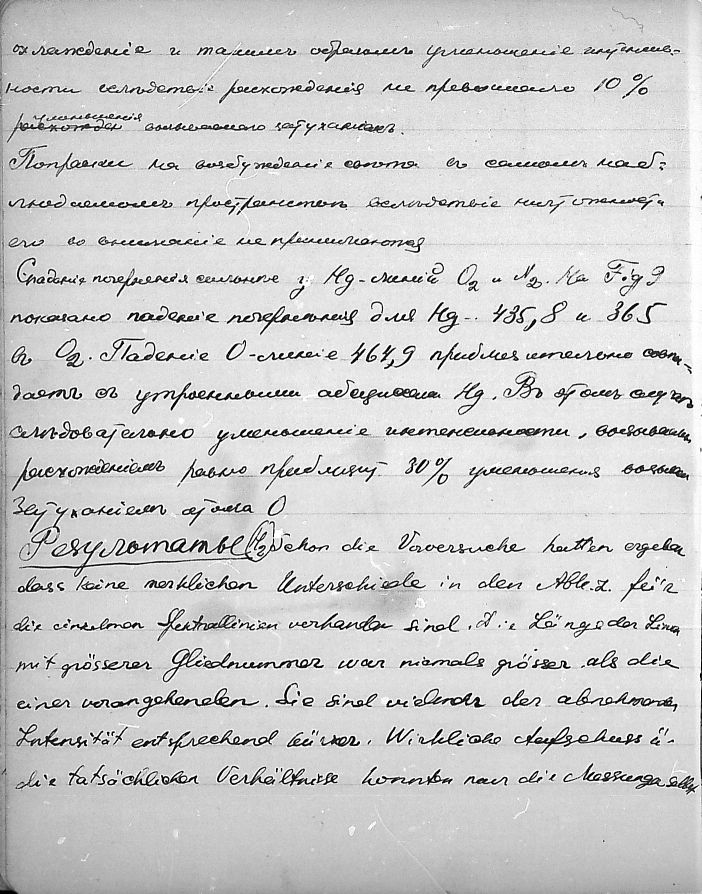 охлажденіе и такимъ образомъ уменьшеніе интенсив-
ности вслѣдствіе расхожденія не превышало 10 %
уменьшенія
расхожден вызываемаго затуханіемъ.
Поправки на возбужденіе свѣта въ самомъ наб-
людаемомъ пространствѣ вслѣдствіе ничтожности
его во вниманіе не принимаются
Спаденіе почернѣнія сильнѣе у Hg-линій O2 и N2. На Fig 9
показано паденіе почернѣнія для Hg-. 435,8 и 365
въ O2. Паденіе O-линіе 464,9 приблизительно совпа-
даетъ съ утроенными абсциссами Hg. Въ этомъ случаѣ
слѣдовательно уменьшеніе интенсивности, вызываемы
расхожденіемъ равно приблизит. 30% уменьшенія вызван
Затуханіемъ атома O
Результаты (H2) Schon die Vorversuche hatten ergeben
dass keine merklichen Unterschiede in den Abkl.z. für
die einzelnen Spektrallinien vorhanden sind. Die Länge der Linien
mit grösserer Gliednummer war niemals grösser als die
einer vorangehenden. Sie sind vielmehr der abnehmenden
Intensität entsprechend kürzer. Wirkliche Aufschluss ü.
die tatsächlichen Verhältnisse konnten nur die Messungen selbst